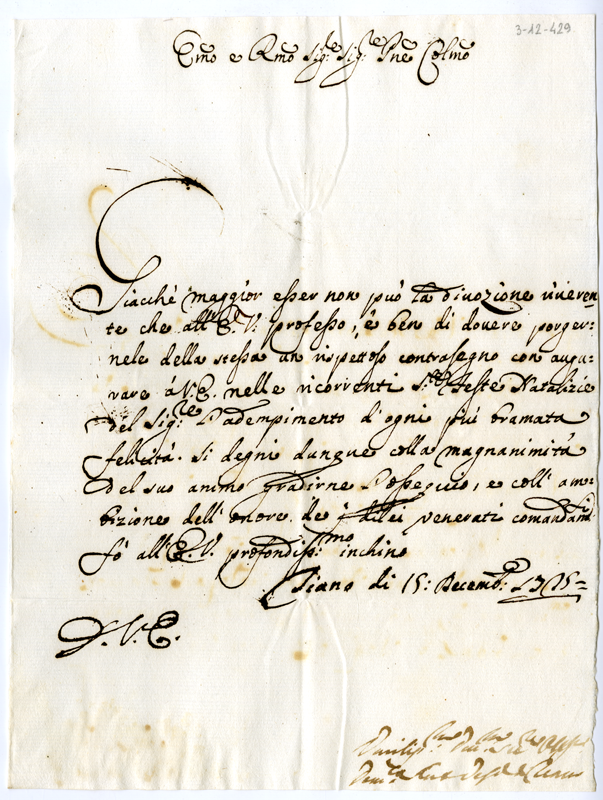 3-12-429
Em̃o e Rm̃o Sig.re Sig.re Pñe Colm̃o
Giacchè maggior esser non può la divozione riveren
te che all'E. V. professo, è ben di dovere porger-
nele della stessa un rispettoso contrasegno con augu-
rare à V. E. nelle ricorrenti S.te Feste Natalizie
del Sig.re l'adempimento d'ogni più bramata
felicità. Si degni dunque colla magnanimità
del suo animo gradirne l'ossequio, e coll'am-
bizione dell'onore de di lei venerati comandam.ti
fò all'E. V. profondiss.mo inchino
di 15: Decemb.e 1715=
D. V. E.